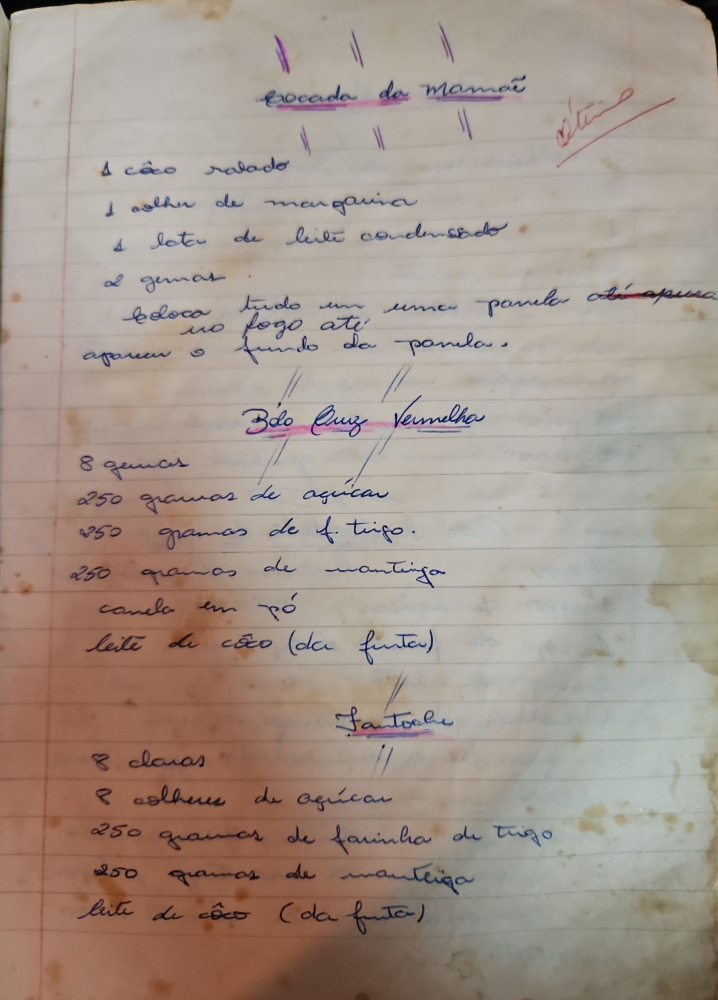 Cocada da Mamãe
ótimo
1 côco ralado
1 colher de margarina
1 lata de leite condensado
2 gemas.
Coloca tudo em uma panela até apare
no fogo até
aparecer o fundo da panela.
Bôlo Cruz Vermelha
8 gemas
250 gramas de açúcar
250 gramas de f. trigo.
250 gramas de manteiga
canela em pó
leite de côco (da fruta)
Fantoche
8 claras
8 colheres de açúcar
250 gramas de farinha de trigo
250 gramas de manteiga
leite de côco (da fruta)